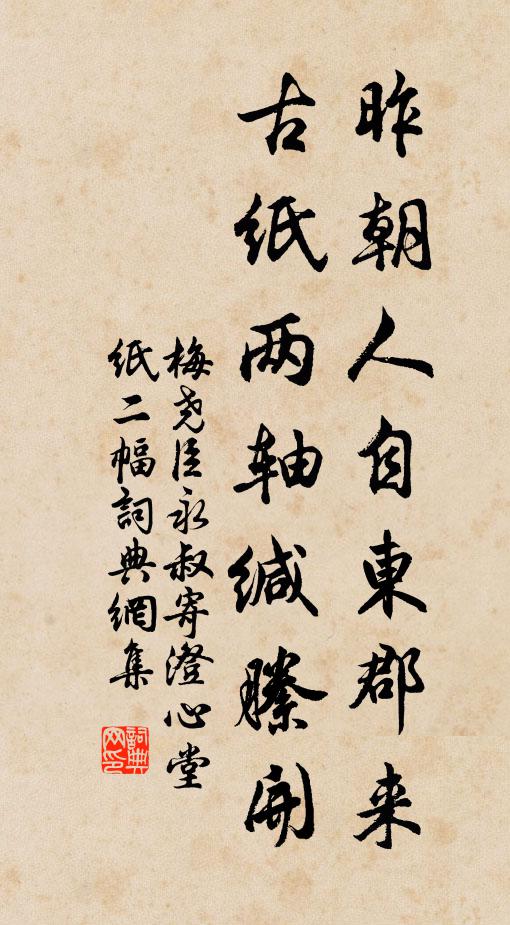 昨朝人自東郡来
古纸两轴缄縢开
梅尧臣永叔寄澄心堂
纸二幅詞典網集
詞典网印